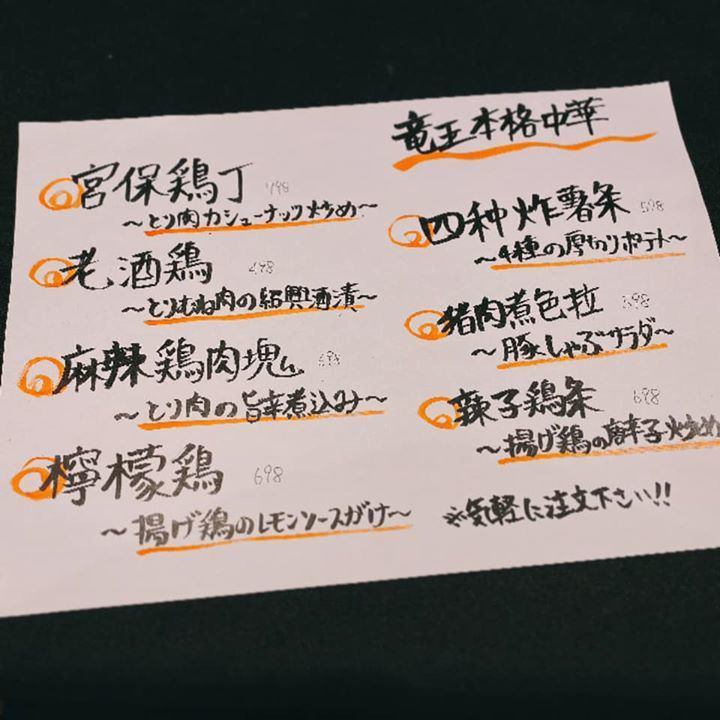 竜王本格中華
宮保鶏丁
~とり肉カシューナッツ炒め~
老酒鶏 498
~とりむね肉の紹興酒漬~
麻辣鶏肉塊
~とり肉の旨辛煮込み~
檸檬鶏 698
~揚げ鶏のレモンソースがけ~
四种炸薯条 598
~4種の厚切りポテト~
猪肉煮色拉 598
~豚しゃぶサラダ~
辣子鶏条 698
~揚げ鶏の唐辛子炒め
※気軽に注文下さい!!